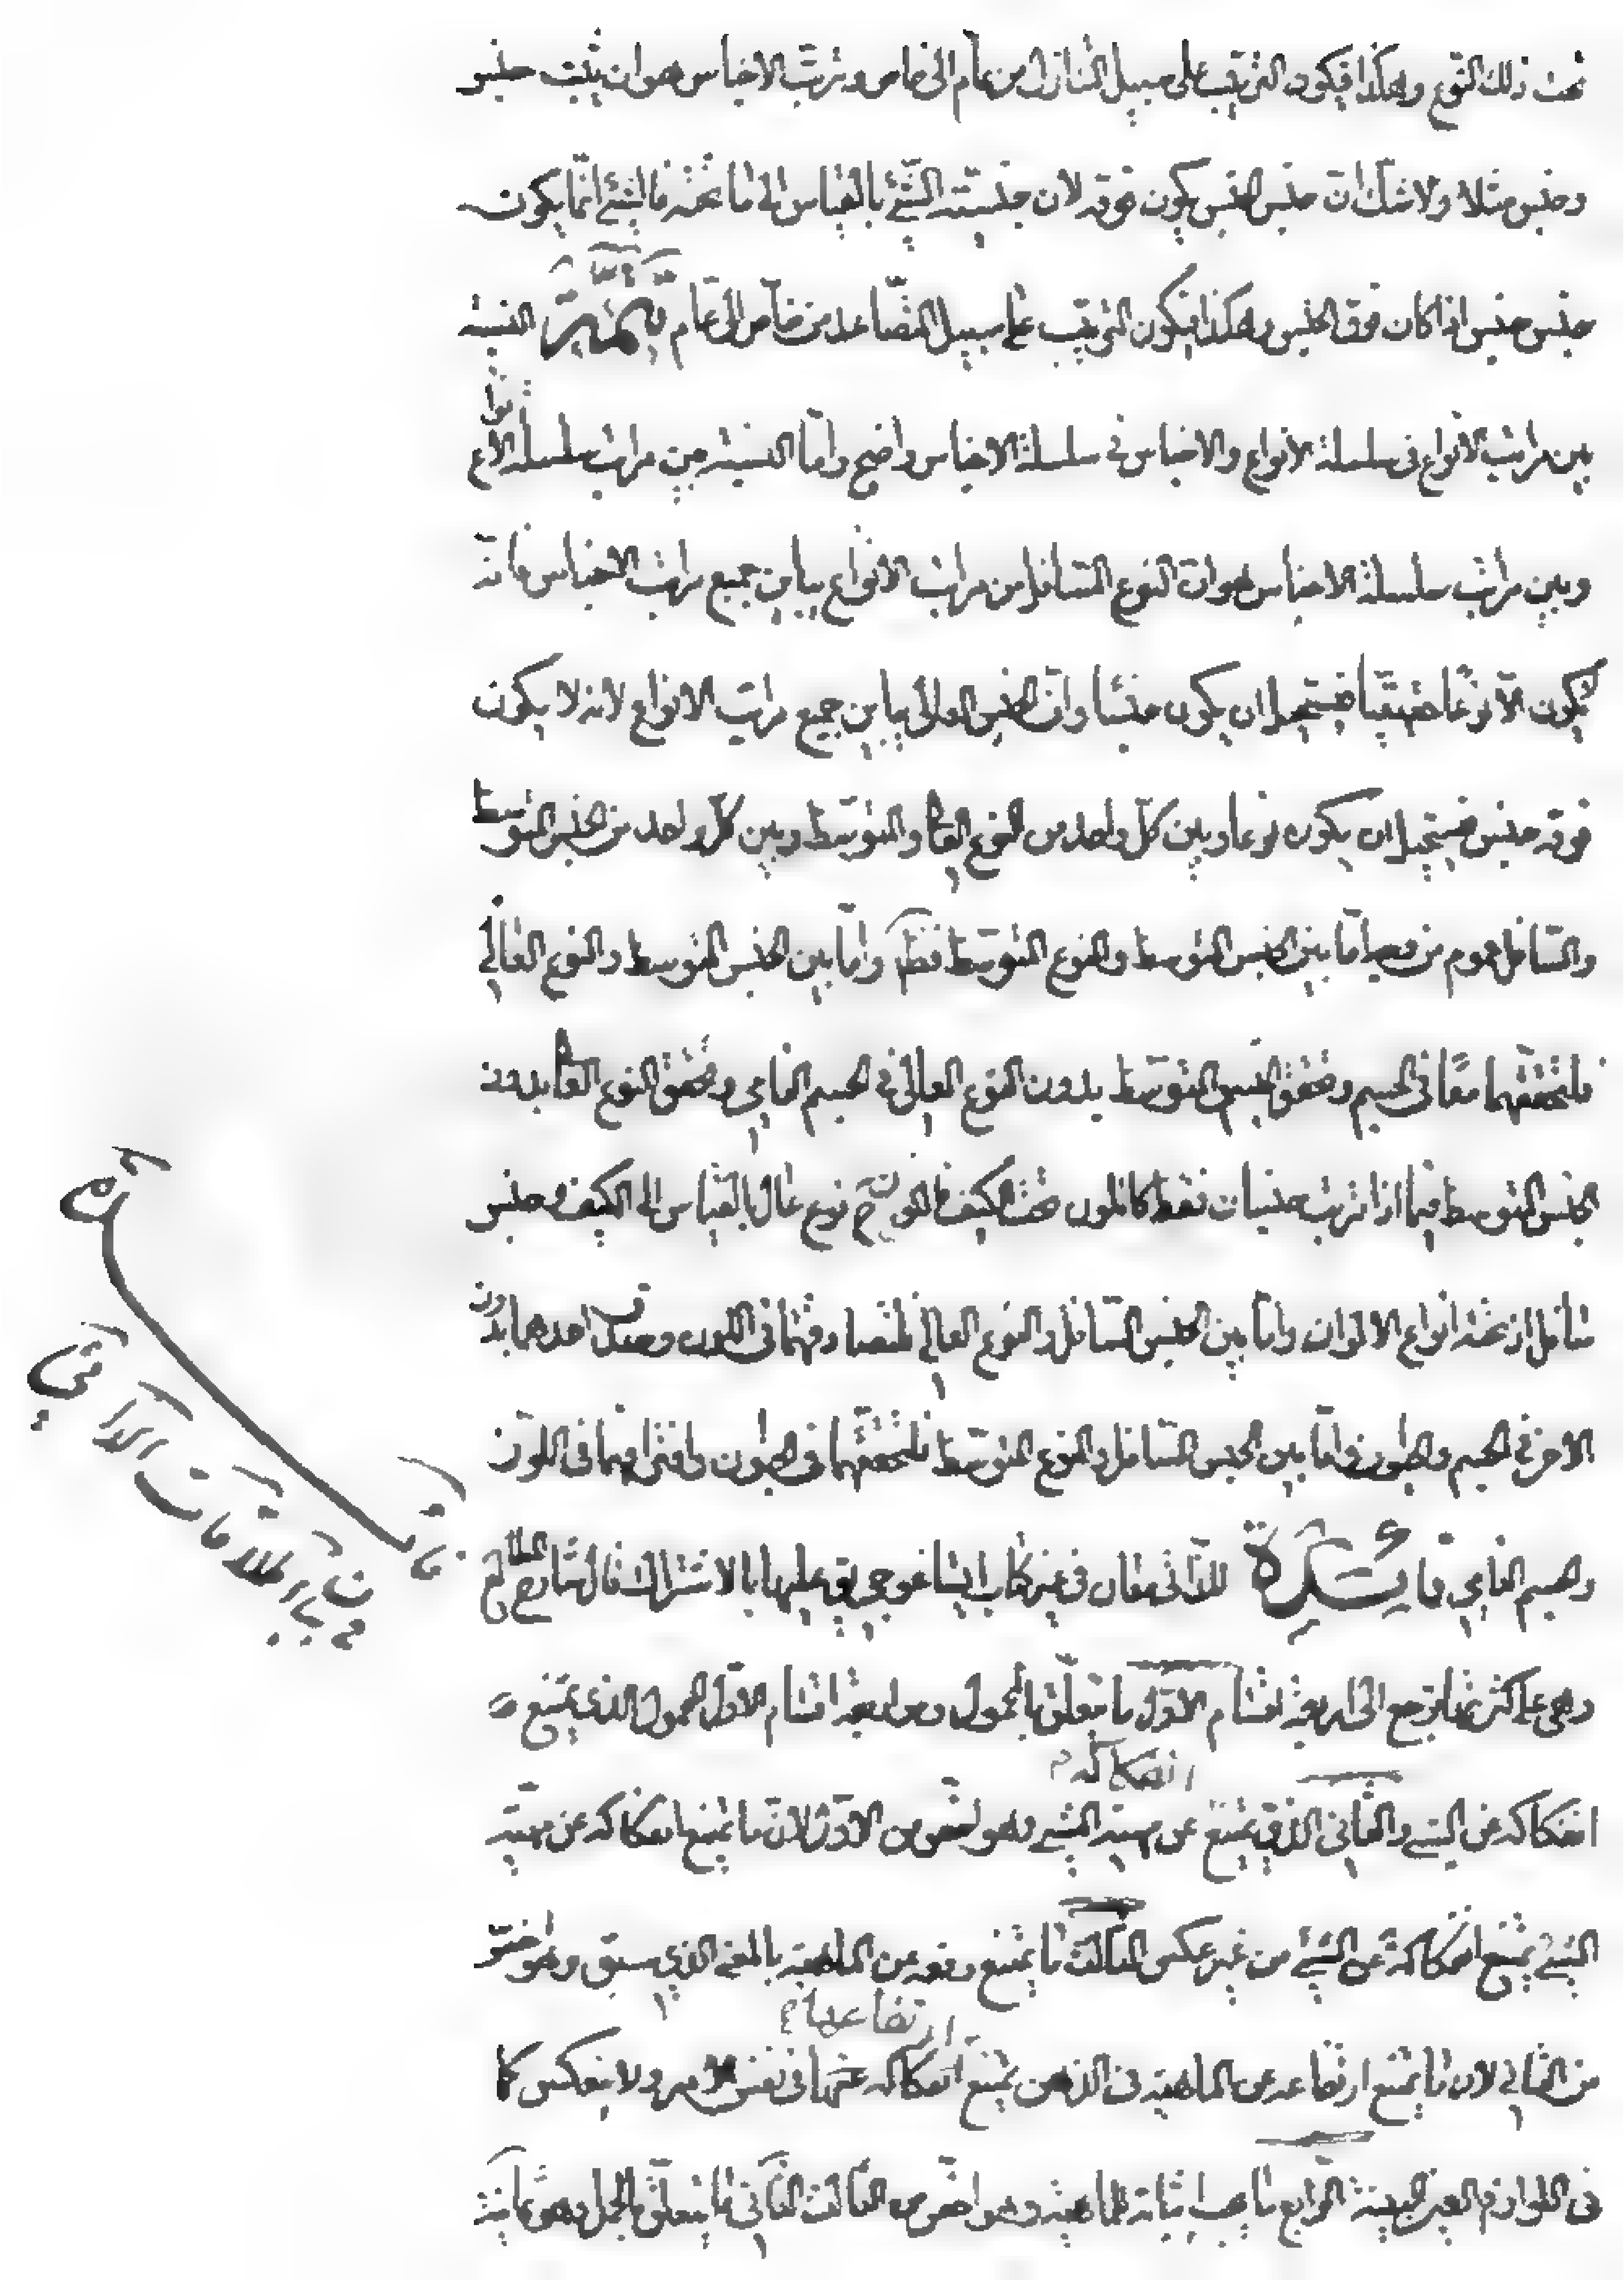 تحت ذلك النوع وهكذا فيكون الترتيب على سبيل التنازل من عام الى خاص وترتب الاجناس هو ان يثبت جنس
وجنس مثلا ولا شك ان جنس الجنس يكون فوقه لان جنسيته الشئ بالقياس الى ما تحته فالشئ انما يكون
جنس جنس اذا كان فوق الجنس وهكذا فيكون الترتيب على سبيل التصاعد من خاص الى عام النسبة
بين مراتب الانواع فى سلسلة الانواع والاجناس فى سلسلة الاجناس واضح واما النسبة بين مراتب سلسلة الانواع
وبين مراتب سلسلة الاجناس هو ان النوع السافل من مراتب الانواع يباين جميع مراتب الاجناس فانه
لا يكون الا نوعا حقيقيا فيستحيل ان يكون جنسا وان الجنس العالى يباين جميع مراتب الانواع لانه لا يكون
فوقه جنس فيستحيل ان يكون نوعا وبين كل واحد من النوع العالى والمتوسط وبين كل واحد من الجنس المتوسط
والسافل عموم من وجه اما بين الجنس المتوسط والنوع المتوسط فظ واما بين الجنس المتوسط والنوع العالى
فلتحققهما معا فى الجسم وتحقق الجنس المتوسط بدون النوع العالى فى الجسم النامى وتحقق النوع العالى بدون
الجنس المتوسط فيما اذا ترتب جنسان فقط كاللون تحت الكيف فاللون ح نوع عال بالقياس الى الكيف وجنس
سافل اذ تحته انواع الالوان واما بين الجنس السافل والنوع العالى فلتصادقهما فى اللون وصدق احدهما بدون
الاخر فى الجسم والحيوان واما بين الجنس السافل والنوع المتوسط فلتحققهما فى الحيوان وافتراقهما فى اللون
والجسم النامى فائدة للذاتى معان فى غير كتاب ايساغوجى يق عليها بالاشتراك قال شارح المطالع
وهى على كثرتها ترجع الى اربعة اقسام الاول ما يتعلق بالمحمول وهو اربعة اقسام الاول المحمول الذى يمتنع
انفكاكه عن الشئ والثانى الذى يمتنع عن مهية الشئ وهو اخص من الاول لان ما يمتنع انفكاكه عن مهية
انفكاكه
الشئ يمتنع انفكاكه عن الشئ من غير عكس الثالث ما يمتنع رفعه عن الماهية بالمعنى الذى سبق وهو اخص
من الثانى لان ما يمتنع ارتفاعه عن الماهية فى الذهن يمتنع انفكاكه عنها فى نفس الامر ولا ينعكس كما
ارتفاعها
فى اللوازم الغير البينة الرابع ما يجب اثباته للماهية وهو اخص من الثالث الثانى ما يتعلق بالحمل وهو ثمانية